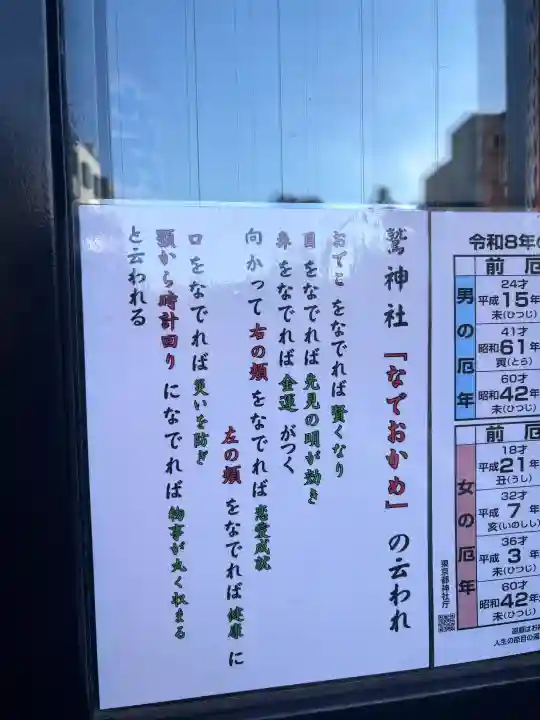 鷲神社「なでおかめ」の云われ
おでこをなでれば賢くなり
目をなでれば先見の明が効き
鼻をなでれば金運がつく
向かって右の頬をなでれば恋愛成就
左の頬をなでれば健康に
口をなでれば災いを防ぎ
顎から時計回りになでれば物事が丸く収まる
と云われる
令和8年の
男の厄年
前厄
24才
平成15年
未(ひつじ)
41才
昭和61年
寅(とら)
60才
昭和42年
未(ひつじ)
女の厄年
前厄
18才
平成21年
丑(うし)
32才
平成7年
亥(いのしし)
36才
平成3年
未(ひつじ)
60才
昭和42年
未(ひつじ)
東京都神社庁